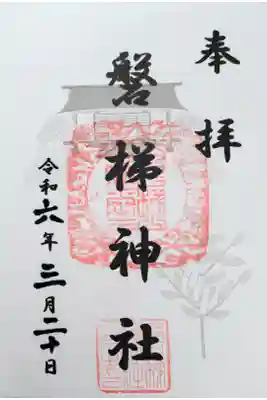 奉拝
磐梯神社
令和六年三月二十日